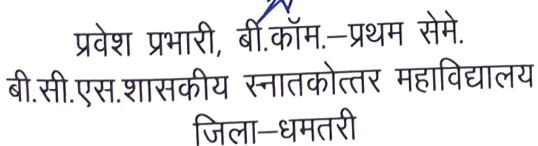 प्रवेश प्रभारी, बी.कॉम.–प्रथम सेमे.
बी.सी.एस.शासकीय स्नातकोत्तर महाविद्यालय
जिला–धमतरी